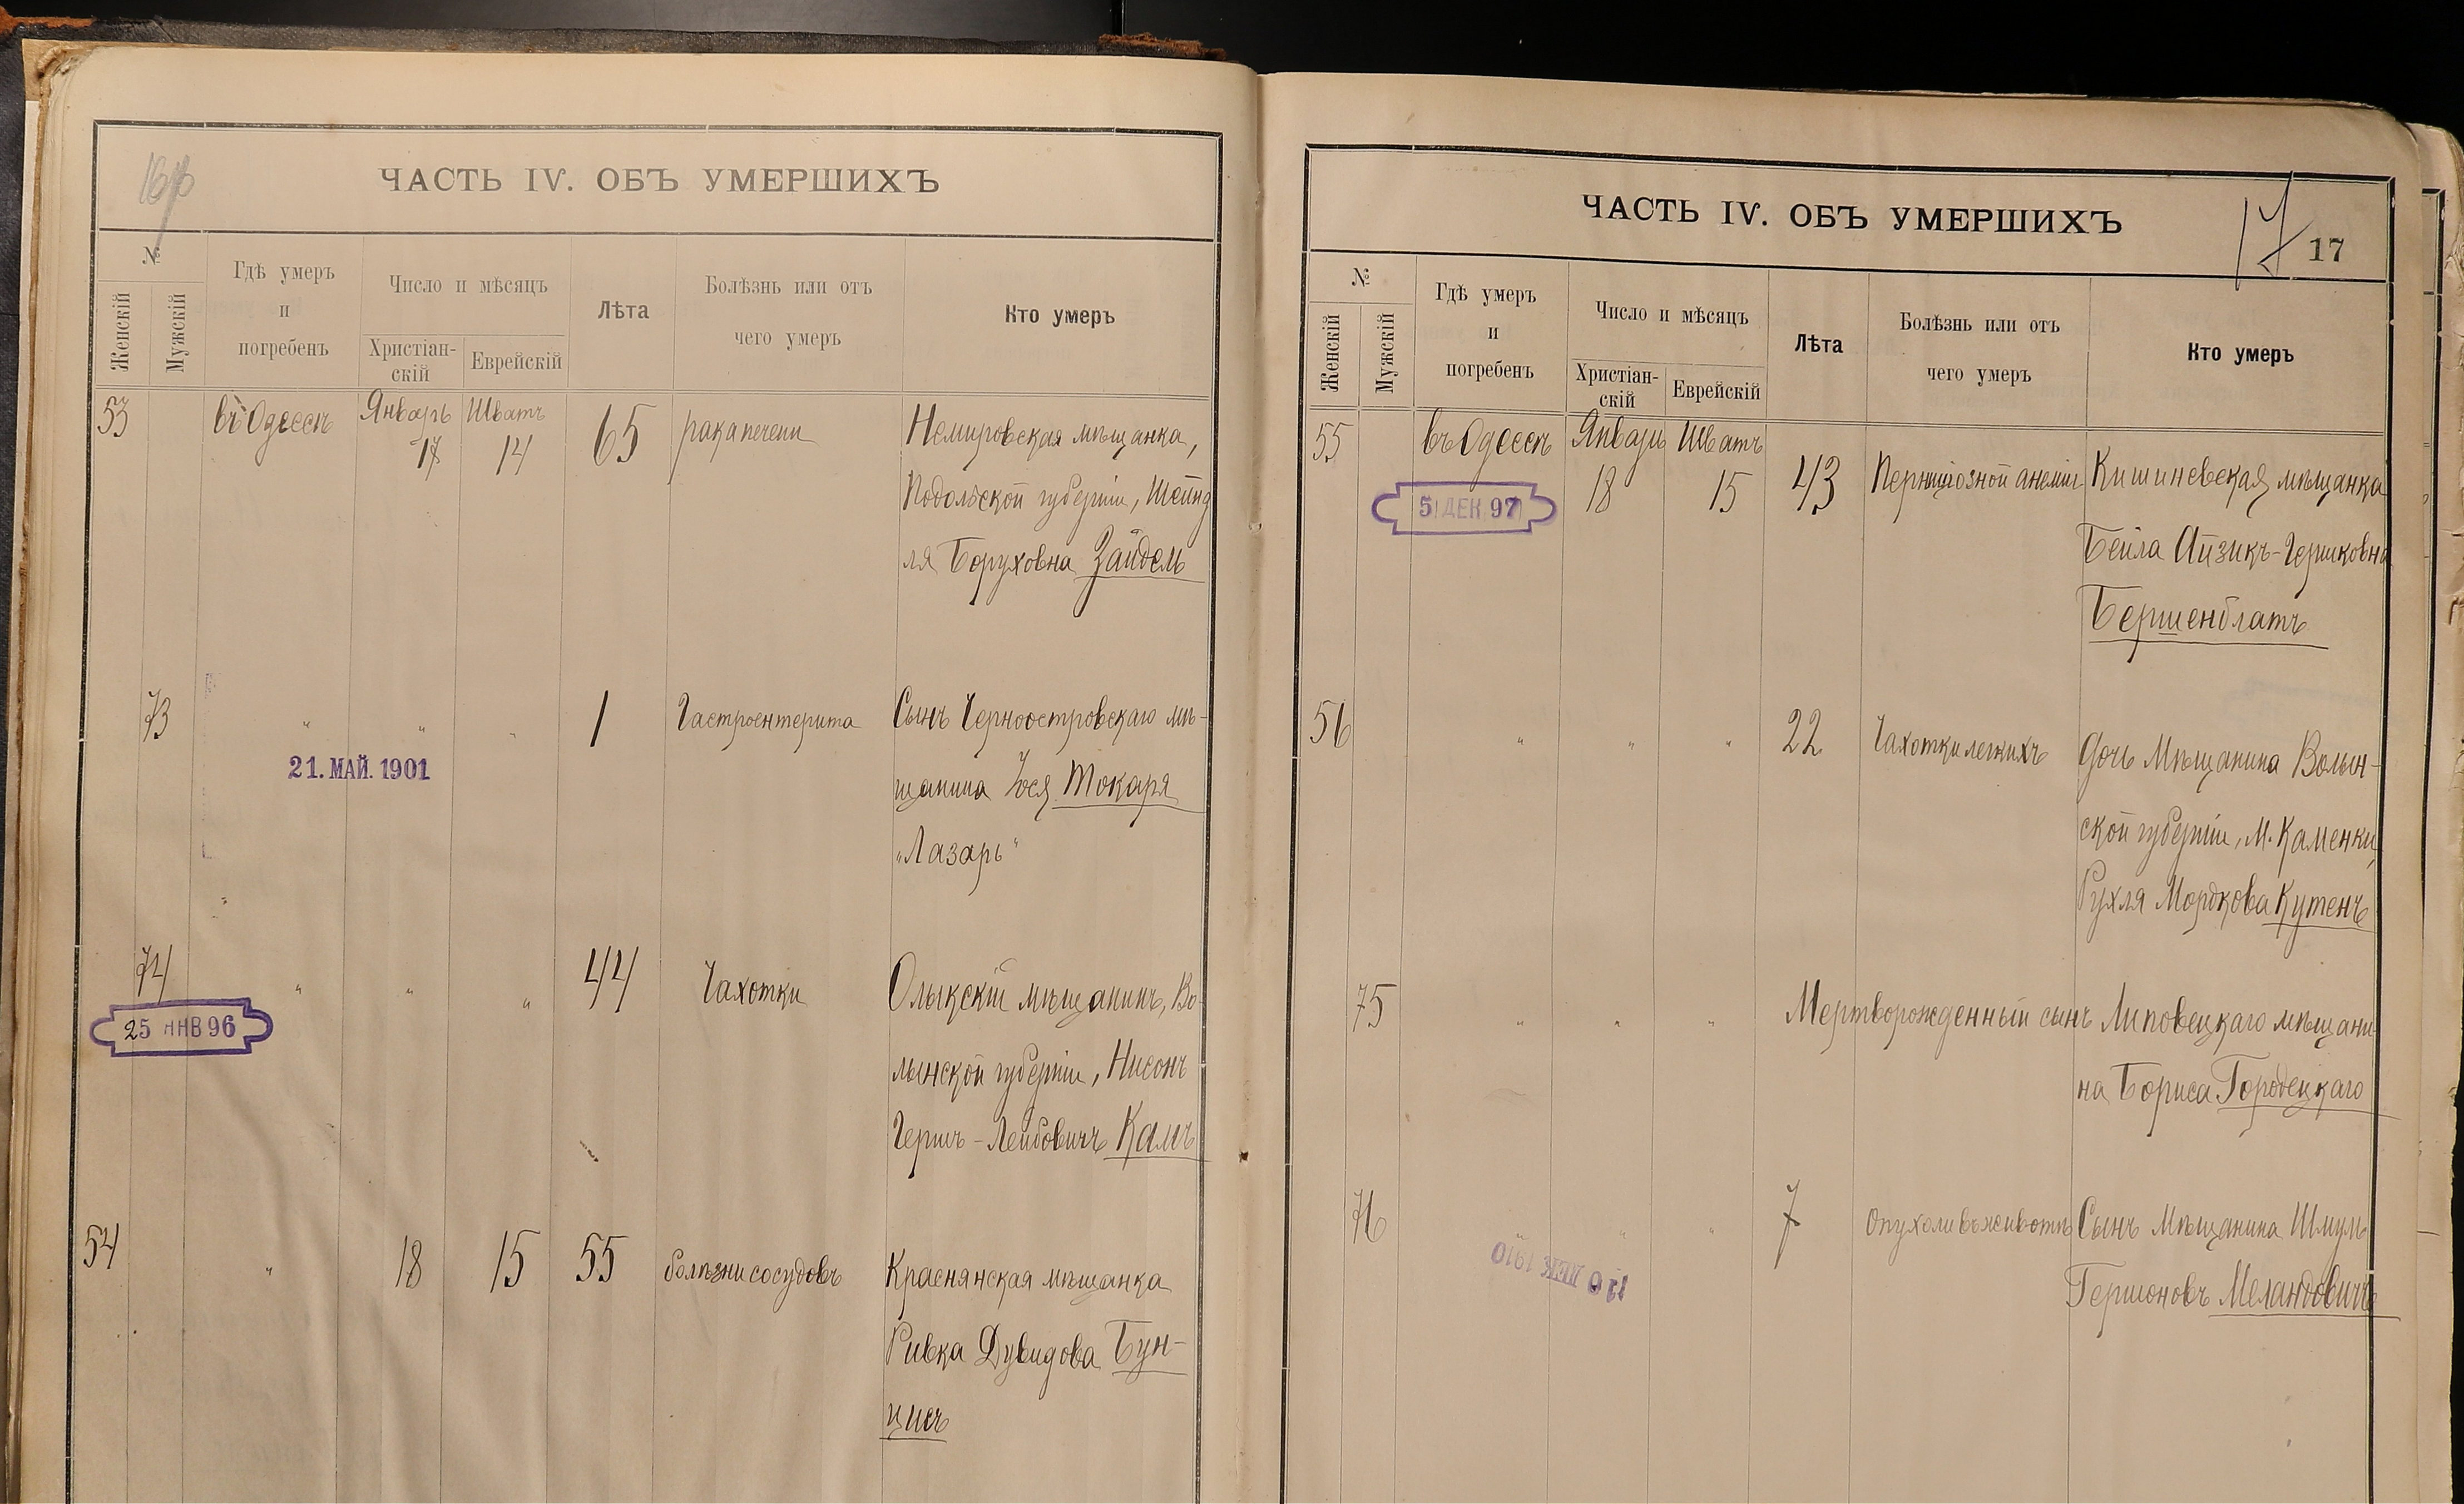 16 об
ЧАСТЬ IV. ОБЪ УМЕРШИХЪ
№
Женскій
Мужскій
Гдѣ умеръ
и
погребенъ
Число и мѣсяцъ
Христіан-
скій
Еврейскій
Лѣта
Болѣзнь или отъ
чего умеръ
Кто умеръ
53 въ Одессѣ Январь 17 Шватъ 14 65 рака печени Немировская мѣщанка,
Подольской губерніи, Шейнд
ля Боруховна Зайдель
73 " " " 1 Гастроентерита Сынъ Черноостровскаго мѣ-
щанина Іося Токаря
"Лазарь"
21. МАЙ. 1901
74 " " " 44 Чахотки Олыкскій мѣщанинъ, Во-
лынской губерніи, Нисонъ
Гершъ-Лейбовичъ Камъ
25 ЯНВ 96
54 " 18 15 55 болѣзни сосудовъ Краснянская мѣщанка
Ривка Дувидова Бун-
цисъ
ЧАСТЬ IV. ОБЪ УМЕРШИХЪ
17
17
№
Женскій
Мужскій
Гдѣ умеръ
и
погребенъ
Число и мѣсяцъ
Христіан-
скій
Еврейскій
Лѣта
Болѣзнь или отъ
чего умеръ
Кто умеръ
55 въ Одессѣ Январь 18 Шватъ 15 43 Пернициозной анеміи Кишиневская мѣщанка
Бейла Айзикъ-Гершковна
Бершенблатъ
5 ДЕК 97
56 " " " 22 Чахотки легкихъ Дочь Мѣщанина Волын-
ской губерніи, М. Каменки,
Рухля Мордкова Кутенъ
75 " " " Мертворожденный сынъ Липовецкаго мѣщани
на Бориса Городецкаго
76 " " " 7 Опухоли въ животѣ Сынъ Мѣщанина Шмуль
Гершоновъ Меландовичъ
10 ДЕК 1910